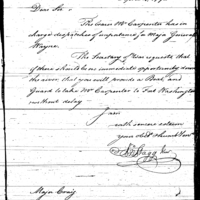 Dear Sir
The bearer Mr Carpenter has in
charge dispatches of importance for Major General
Wayne.
The Secretary of War requests that
if there should be no immediate opportunity down
the river that you will provide a Boat, and
Guard to take Mr Carpenter to Fort Washington
without delay
I am
with sincere esteem
your obt humble Servt
Major Craig